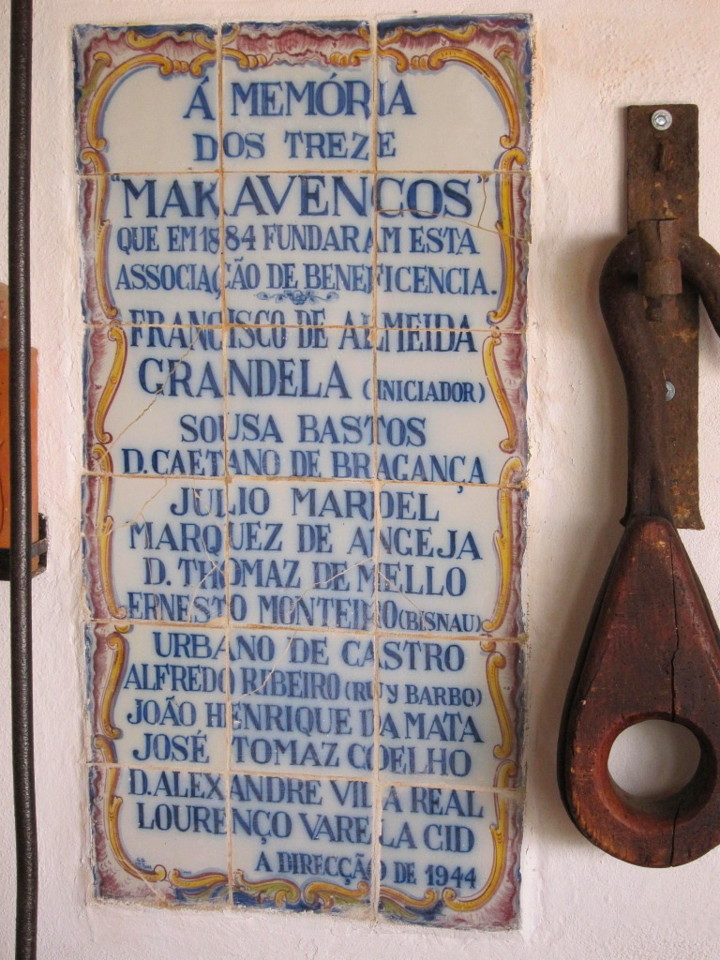 Á MEMÓRIA
DOS TREZE
"MAKAVENCOS"
QUE EM 1884 FUNDARAM ESTA
ASSOCIAÇÃO DE BENEFICENCIA.
FRANCISCO DE ALMEIDA
GRANDELA (INICIADOR)
SOUSA BASTOS
D. CAETANO DE BRAGANÇA
JULIO MARDEL
MARQUEZ DE ANGEJA
D. THOMAZ DE MELLO
ERNESTO MONTEIRO (BISNAU)
URBANO DE CASTRO
ALFREDO RIBEIRO (RUY BARBO)
JOÃO HENRIQUE DA MATA
JOSÉ TOMAZ COELHO
D. ALEXANDRE VILLA REAL
LOURENÇO VARELA CID
A DIRECÇÃO DE 1944